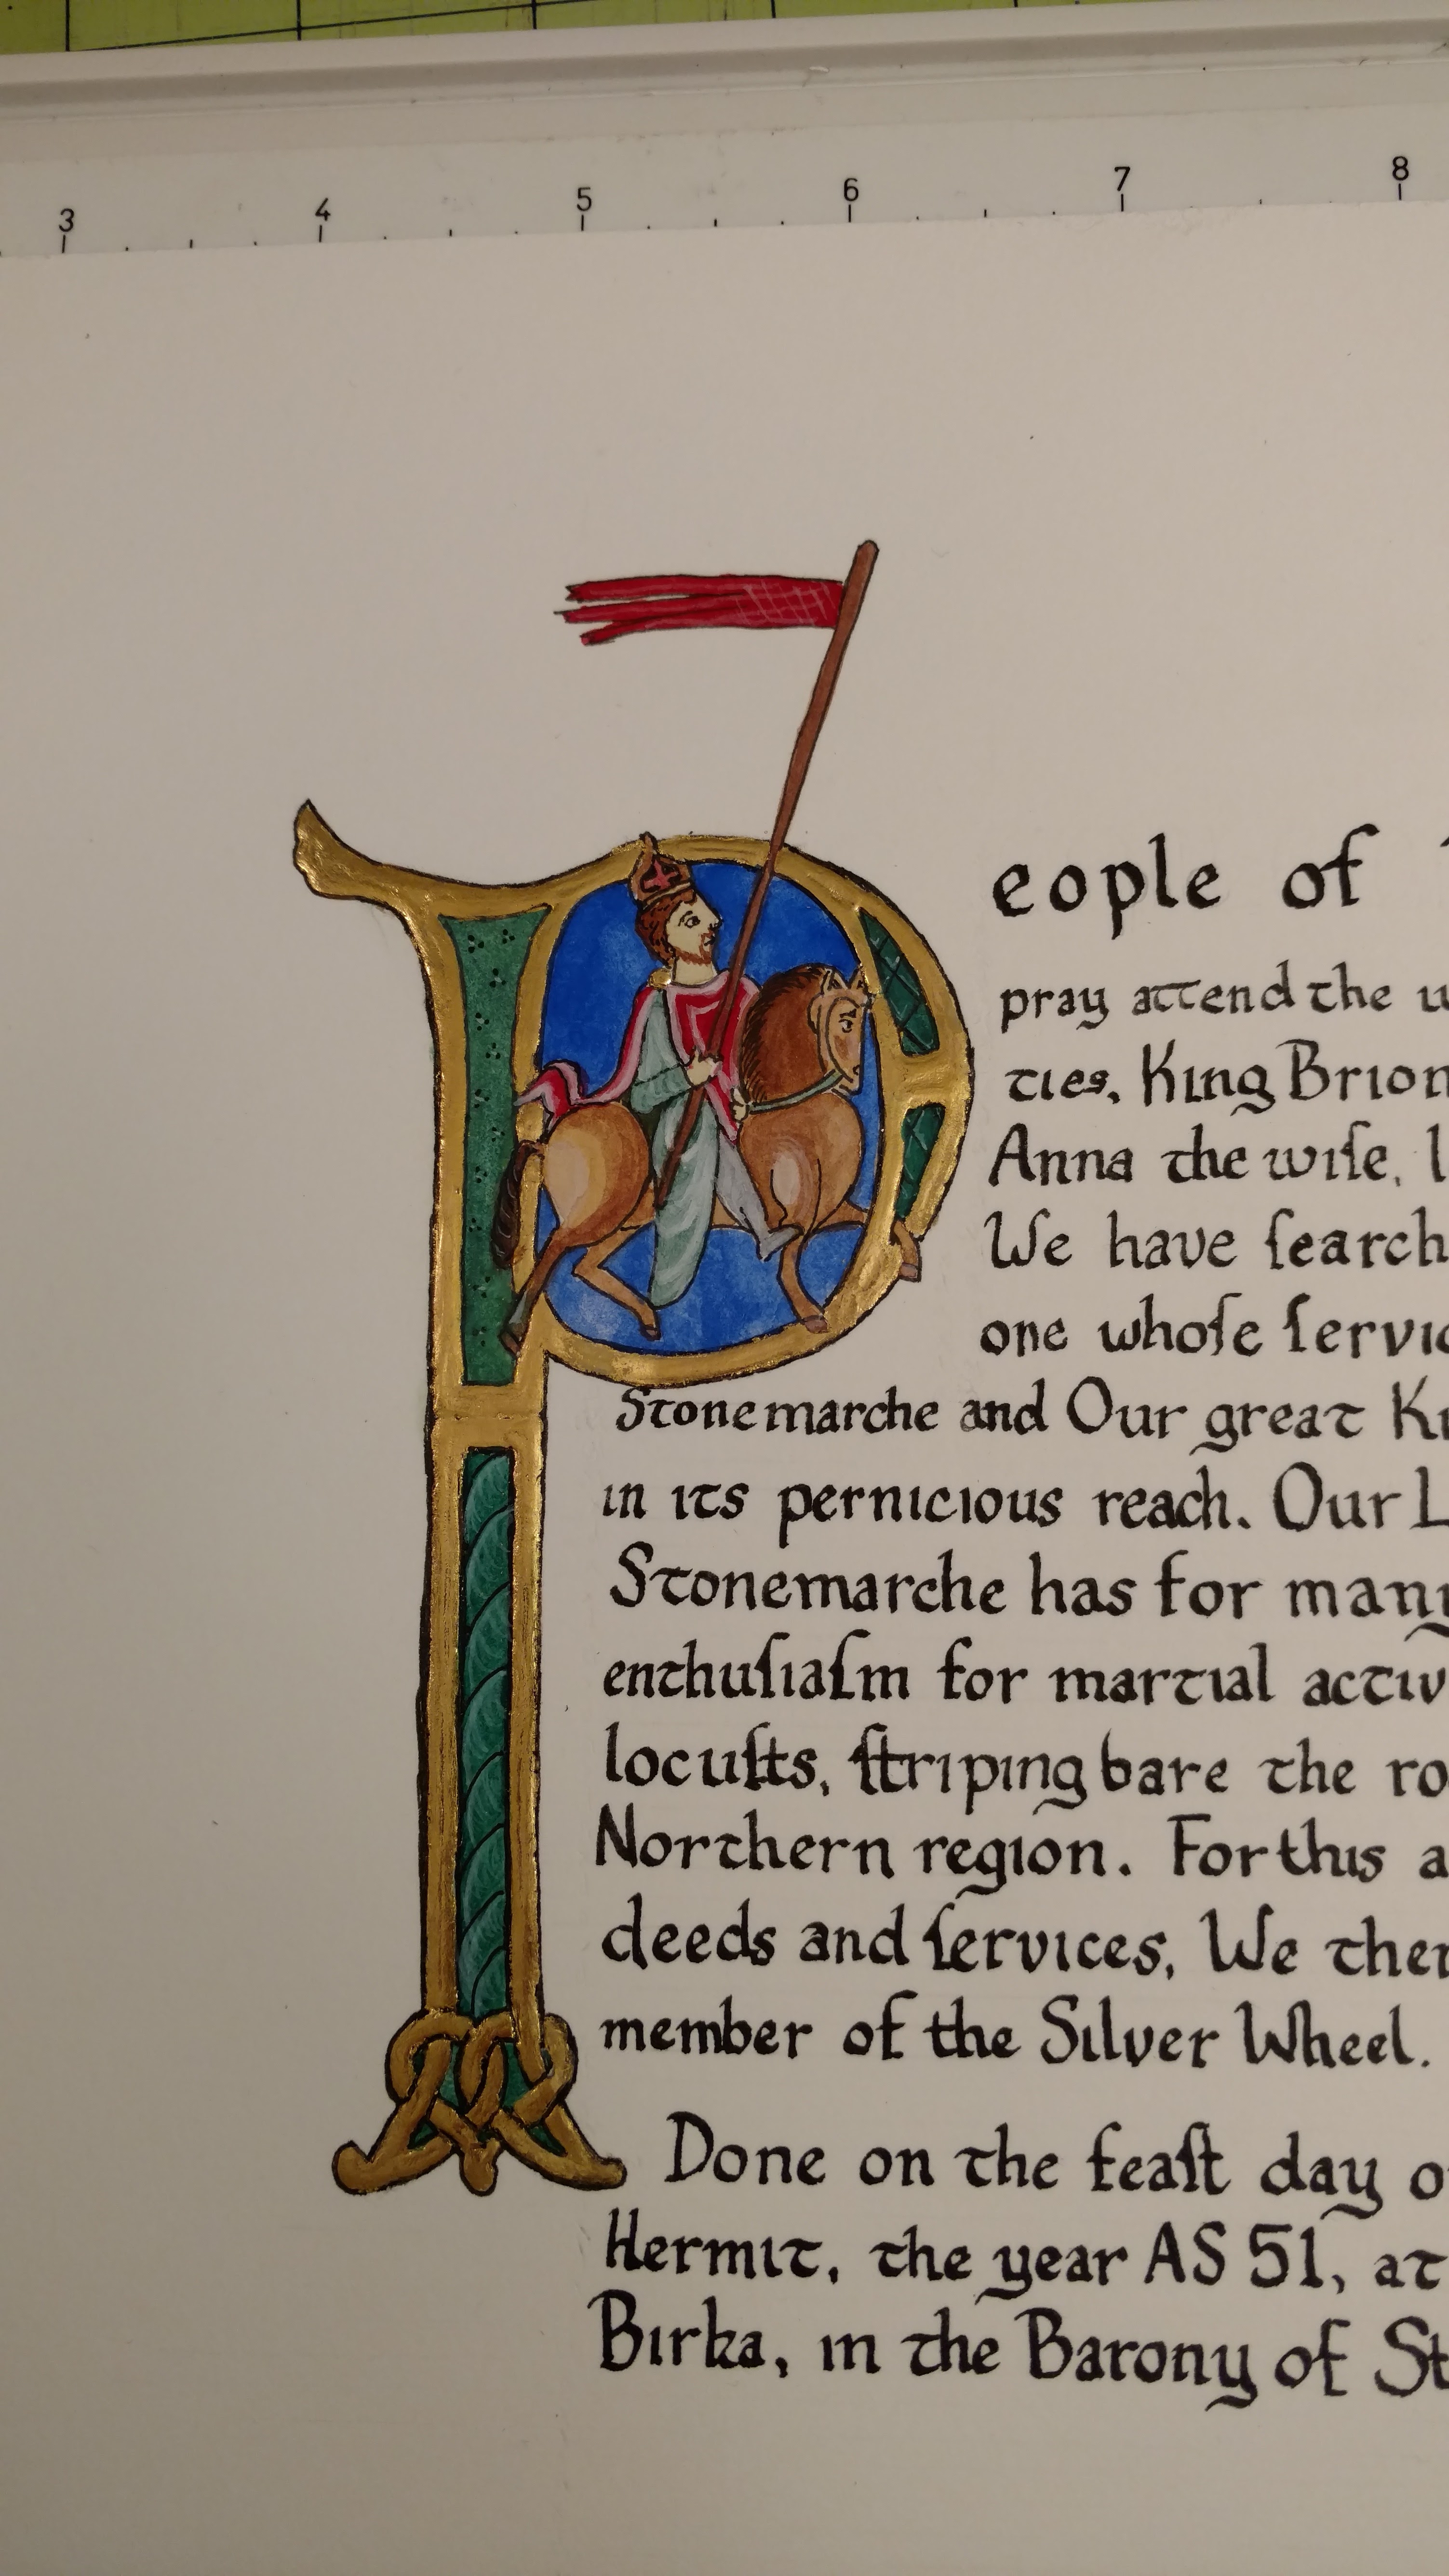 3 4 5 6 7 8
People of
pray attend the u
ties, King Brion
Anna the wiſe, l
We have ſearch
one whoſe ſervic
Stonemarche and Our great Ki
in its pernicious reach. Our L
Stonemarche has for many
enthuſiaſm for martial activ
locuſts, ſtriping bare the ro
Northern region. For this a
deeds and ſervices, We ther
member of the Silver Wheel.
Done on the feaſt day o
Hermit, the year AS 51, at
Birka, in the Barony of St